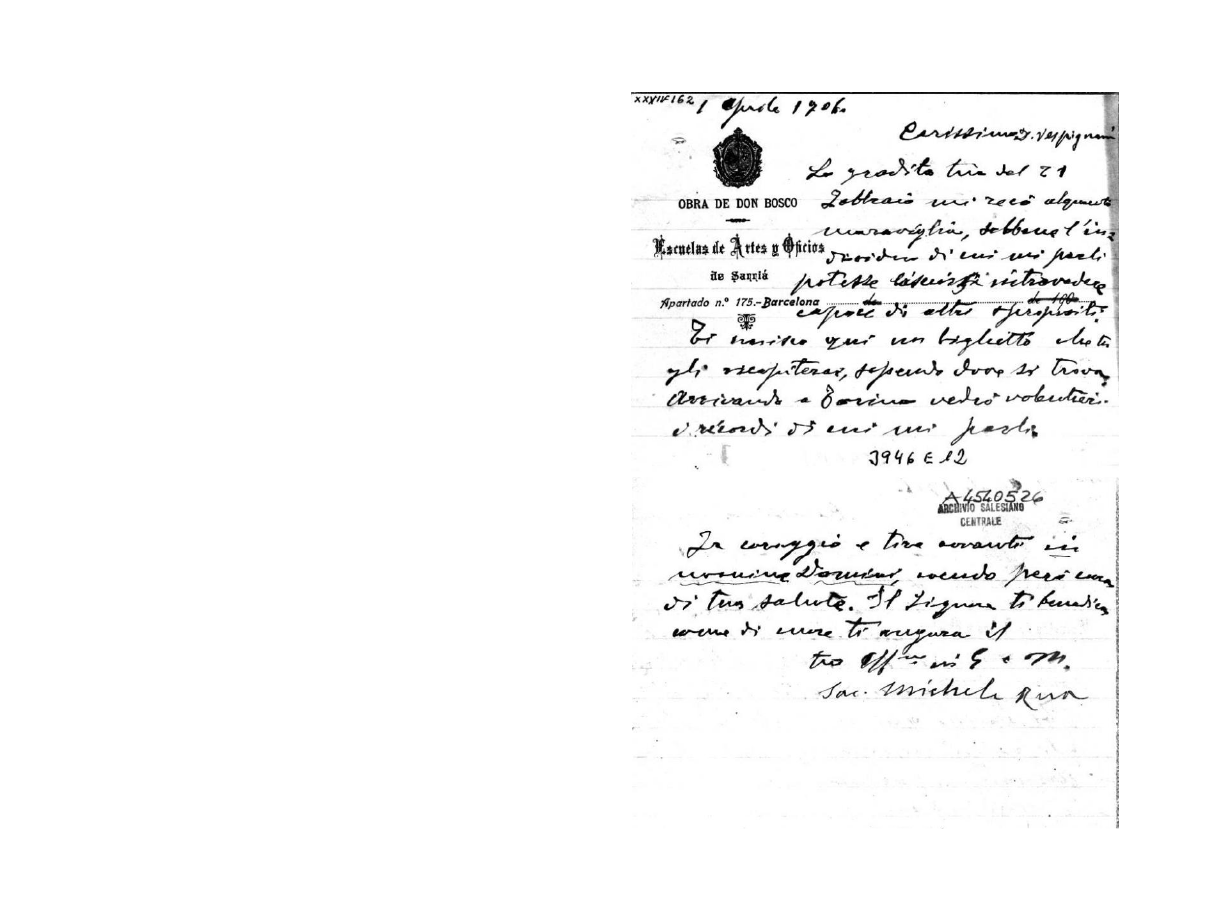 XXXIV162
1 Aprile 1906.
Carissimo D. Vespignani
La gradita tua del 21
OBRA DE DON BOSCO
Febbraio mi recò alquanto
maraviglia, sebbene l'in=
Escuelas de Artes y Oficios
di cui mi parli
de Sarriá
potesse lasciarsi intravedere
Apartado n.º 175.-Barcelona de de 190
capace di altri spropositi.
Ti unisco qui un biglietto che tu
gli recapiterai, sapendo dove si trova.
Arrivando a Torino vedrò volentieri
i ricordi di cui mi parli.
3946 E 12
A4540526
ARCHIVIO SALESIANO
CENTRALE
Fa coraggio e tira avanti in
nomine Domini, avendo però cura
di tua salute. Il Signore ti benedica
come di cuore ti augura il
tuo Aff.mo in G. e M.
Sac. Michele Rua